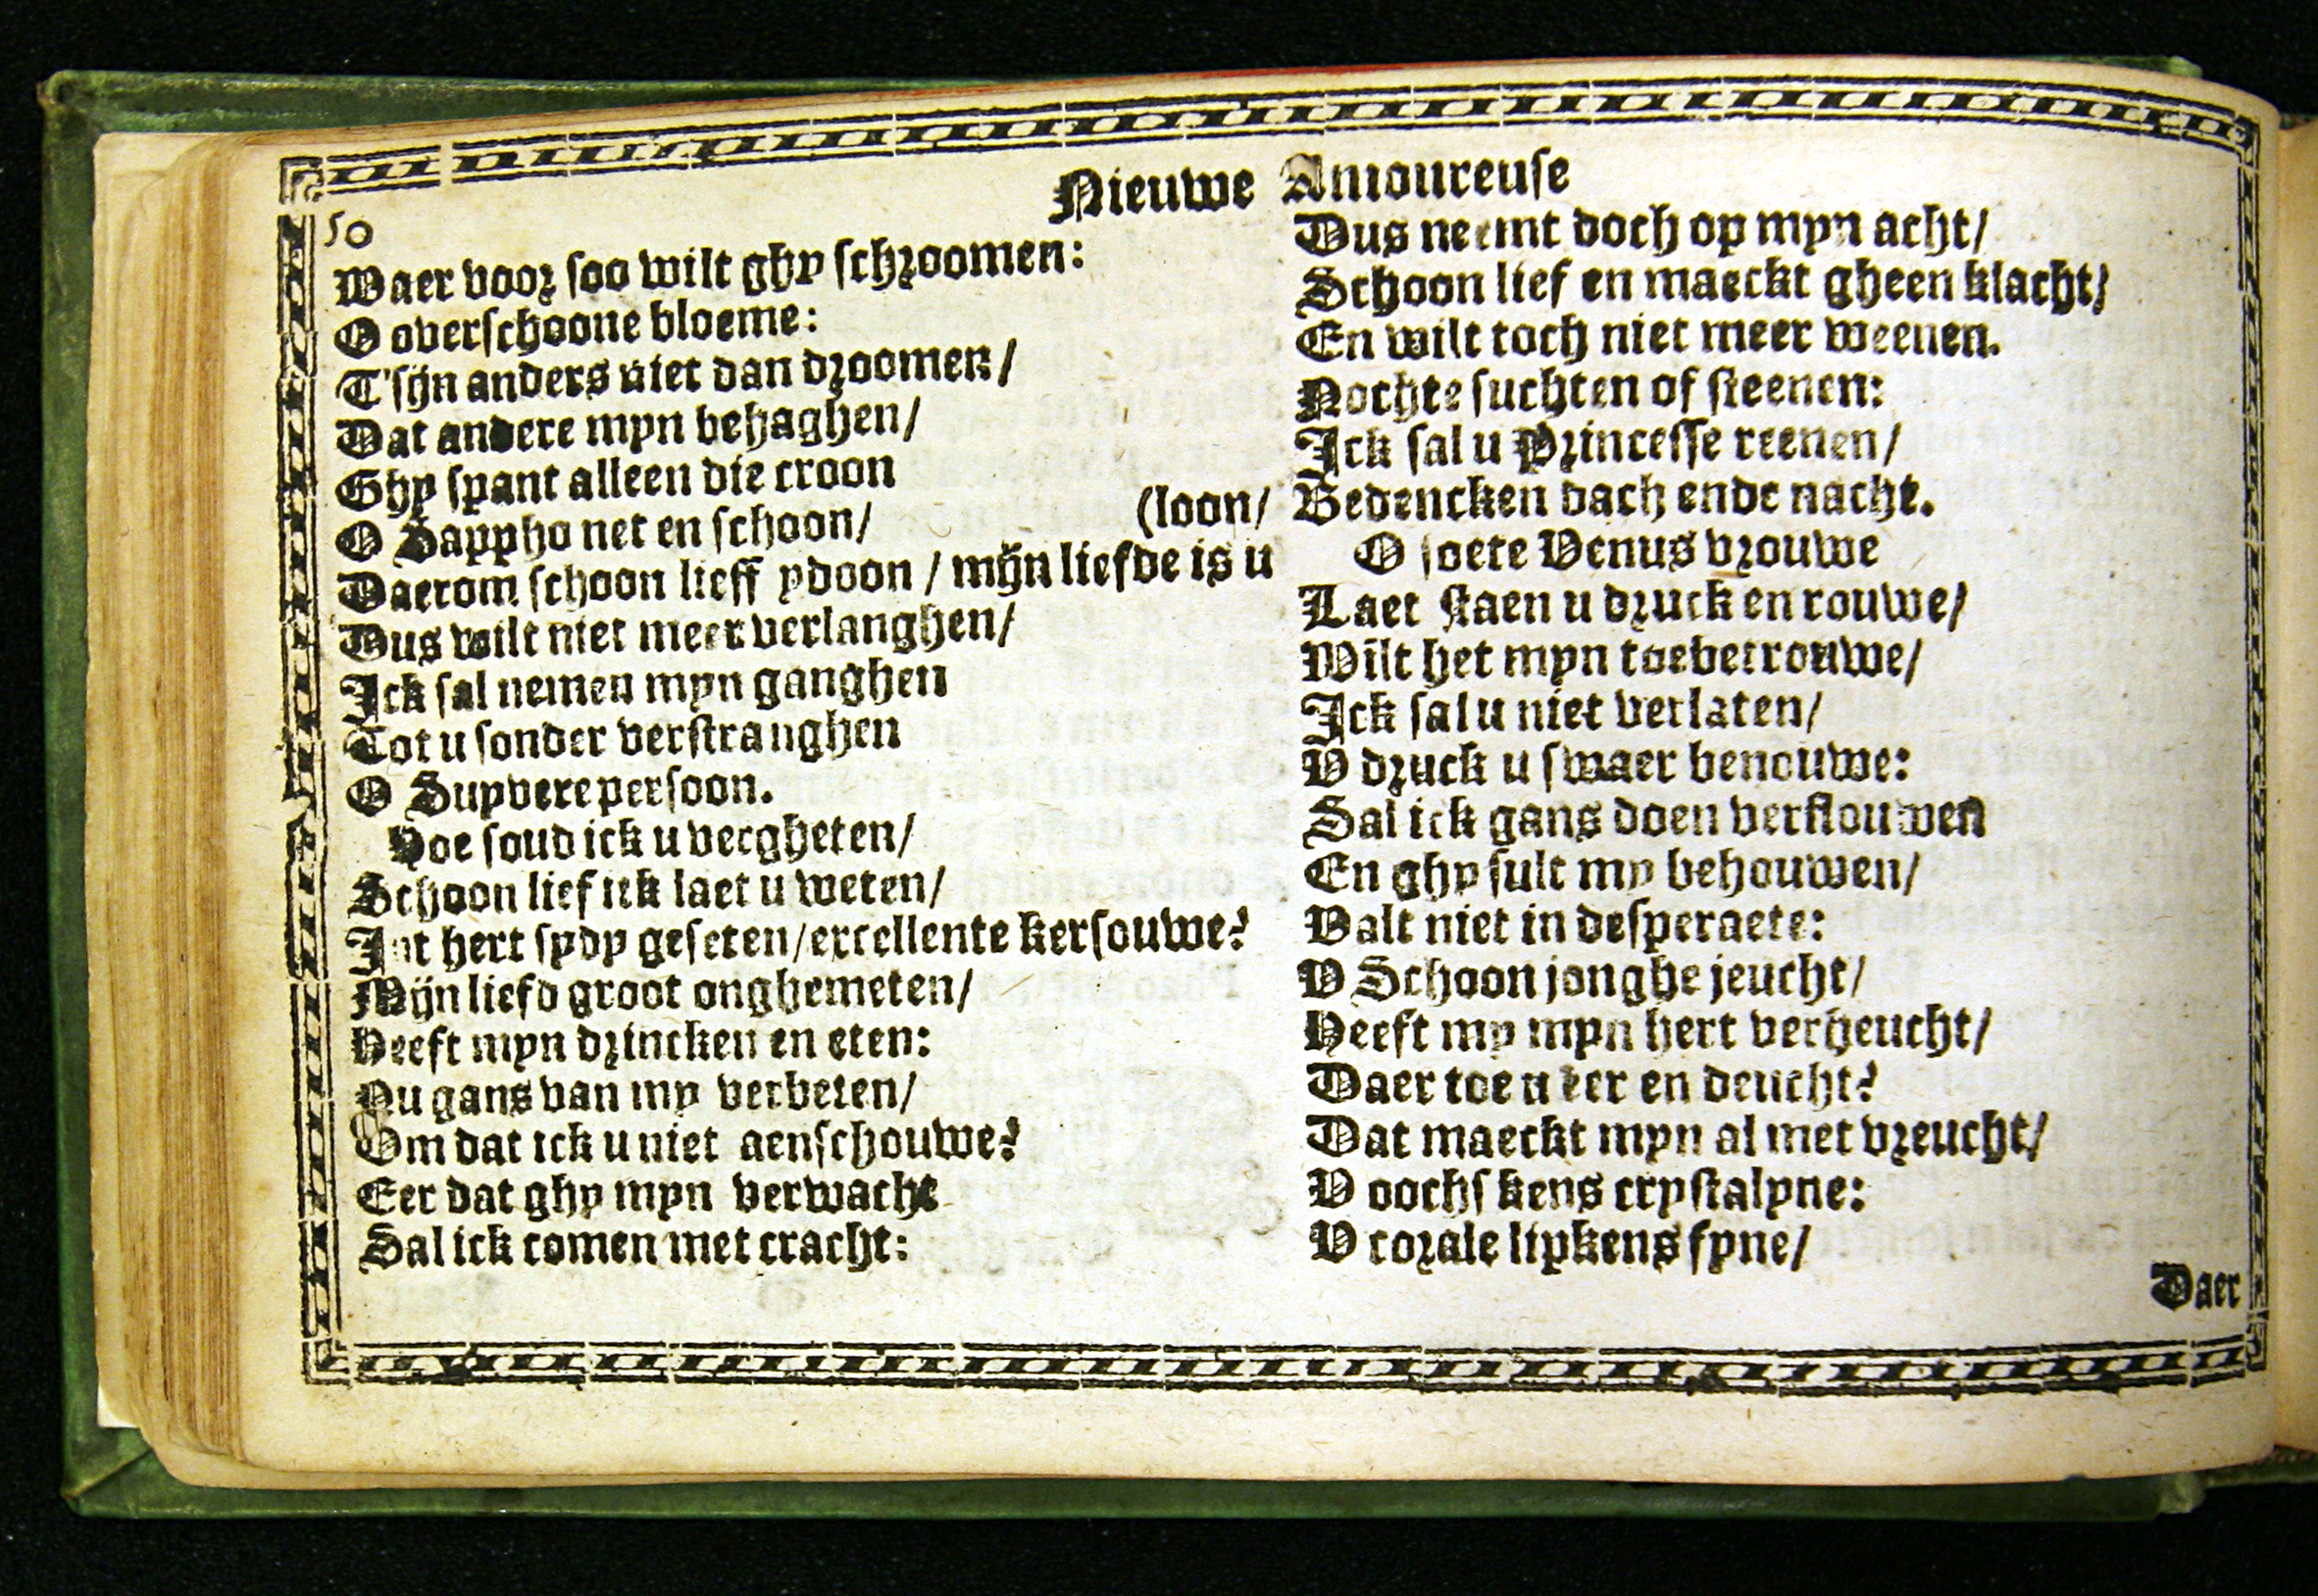 Nieuwe Amoureuse
50
Waer voor soo wilt ghy schroomen:
O overschoone bloeme:
T'sijn anders niet dan droomen/
Dat andere myn behaghen/
Ghy spant alleen die croon
O Sappho net en schoon/
(loon/
Daerom schoon lieff ydoon / mijn liefde is u
Dus wilt niet meer verlanghen/
Ick sal nemen myn ganghen
Tot u sonder verstranghen
O Suyvere persoon.
Hoe soud ick u vergheten/
Schoon lief ick laet u weten/
Int hert sydy geseten/excellente kersouwe?
Mijn liefd groot onghemeten/
Heeft myn drincken en eten:
Nu gans van my verbeten/
Om dat ick u niet aenschouwe?
Eer dat ghy myn verwacht
Sal ick comen met cracht:
Dus neemt doch op myn acht/
Schoon lief en maeckt gheen klacht/
En wilt toch niet meer weenen.
Nochte suchten of steenen:
Ick sal u Princesse reenen/
Bedencken dach ende nacht.
O soete Venus vrouwe
Laet staen u druck en rouwe/
Wilt het myn toebetrouwe/
Ick sal u niet verlaten/
V druck u swaer benouwe:
Sal ick gans doen verflouwen
En ghy sult my behouwen/
Valt niet in desperaete:
V Schoon jonghe jeucht/
Heeft my myn hert verheucht/
Daer toe u eer en deucht?
Dat maeckt myn al met vreucht/
V oochskens crystalyne:
V corale lipkens fyne/
Daer